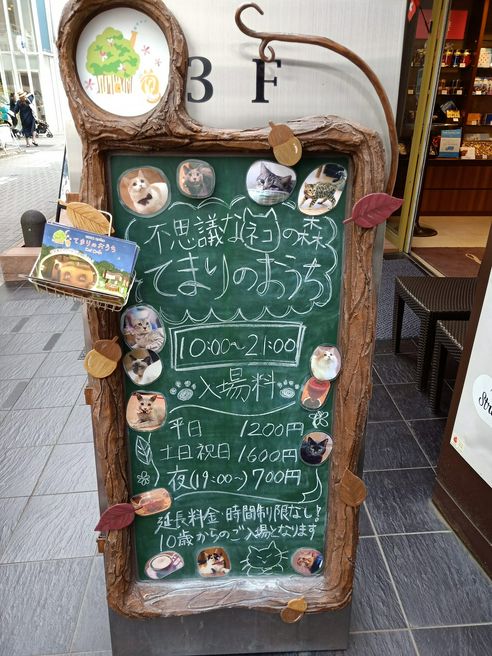 3 F
不思議なネコの森
てまりのおうち
てまりのおうち
10:00~21:00
入場料
平日 1200円
土日祝日 1600円
夜(19:00~) 700円
延長料金・時間制限なし!
10歳からのご入場となります